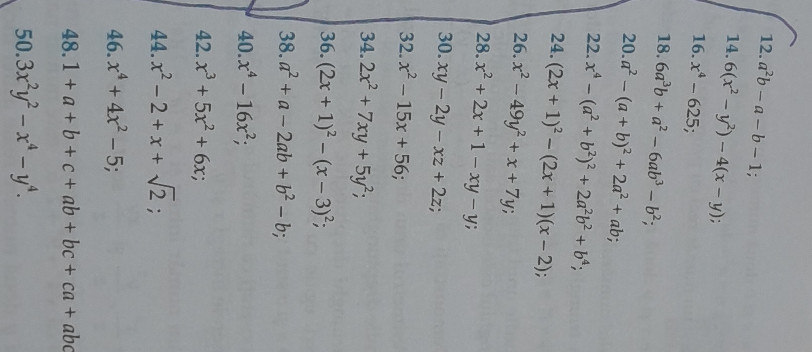 12. a²b – a – b – 1;
14. 6(x² – y²) – 4(x – y);
16. x⁴ – 625;
18. 6a³b + a² – 6ab³ – b²;
20. a² – (a + b)² + 2a² + ab;
22. x⁴ – (a² + b²)² + 2a²b² + b⁴;
24. (2x + 1)² – (2x + 1)(x – 2);
26. x² – 49y² + x + 7y;
28. x² + 2x + 1 – xy – y;
30. xy – 2y – xz + 2z;
32. x² – 15x + 56;
34. 2x² + 7xy + 5y²;
36. (2x + 1)² – (x – 3)²;
38. a² + a – 2ab + b² – b;
40. x⁴ – 16x²;
42. x³ + 5x² + 6x;
44. x² – 2 + x + √2;
46. x⁴ + 4x² – 5;
48. 1 + a + b + c + ab + bc + ca + abc
50. 3x²y² – x⁴ – y⁴.